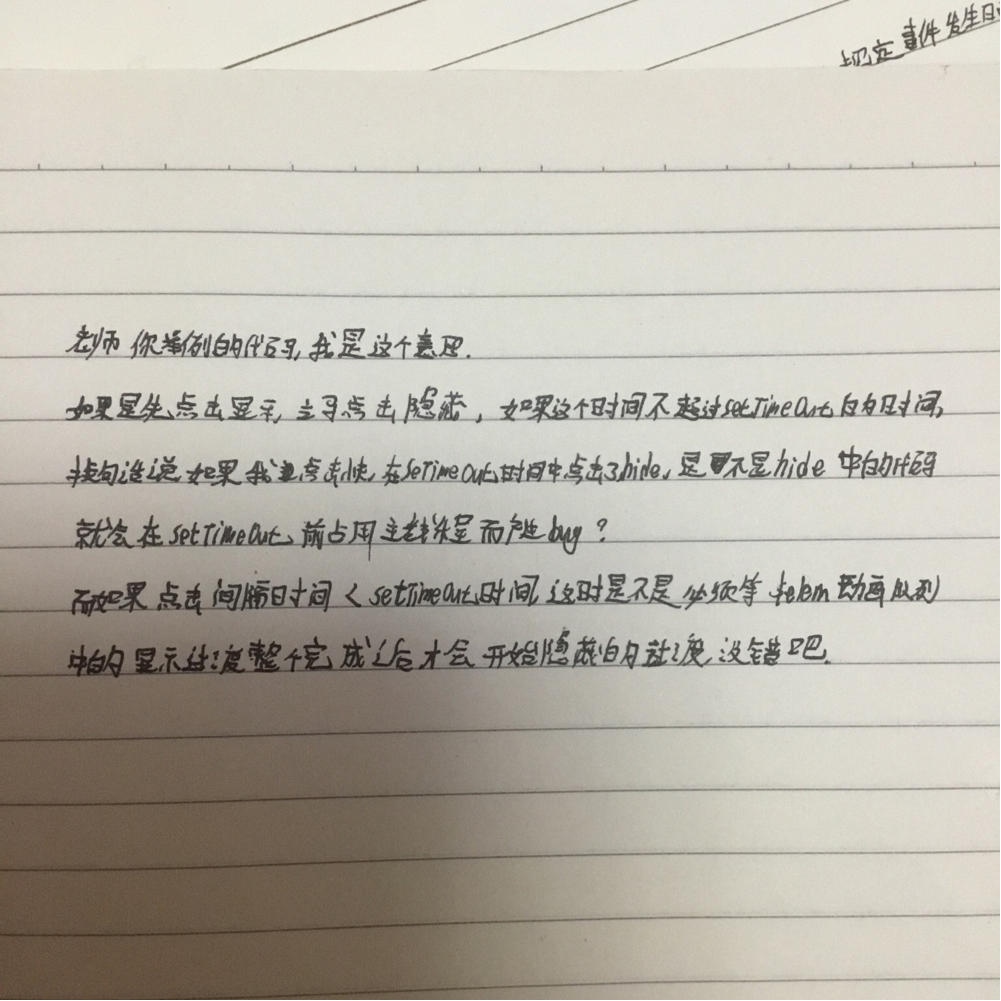 规定事件发生日
老师你举例的代码,我是这个意思.
如果是先点击显示,立马点击隐藏,如果这个时间不超过setTimeOut的时间,
换句话说如果我点击快,在SeTimeOut时间中点击了hide,是不是hide中的代码
就会在setTimeOut前占用主线程而产生bug?
而如果点击间隔时间<setTimeOut时间,这时是不是必须等$elem动画队列
中的显示过渡整个完成之后才会开始隐藏的过渡,没错吧.